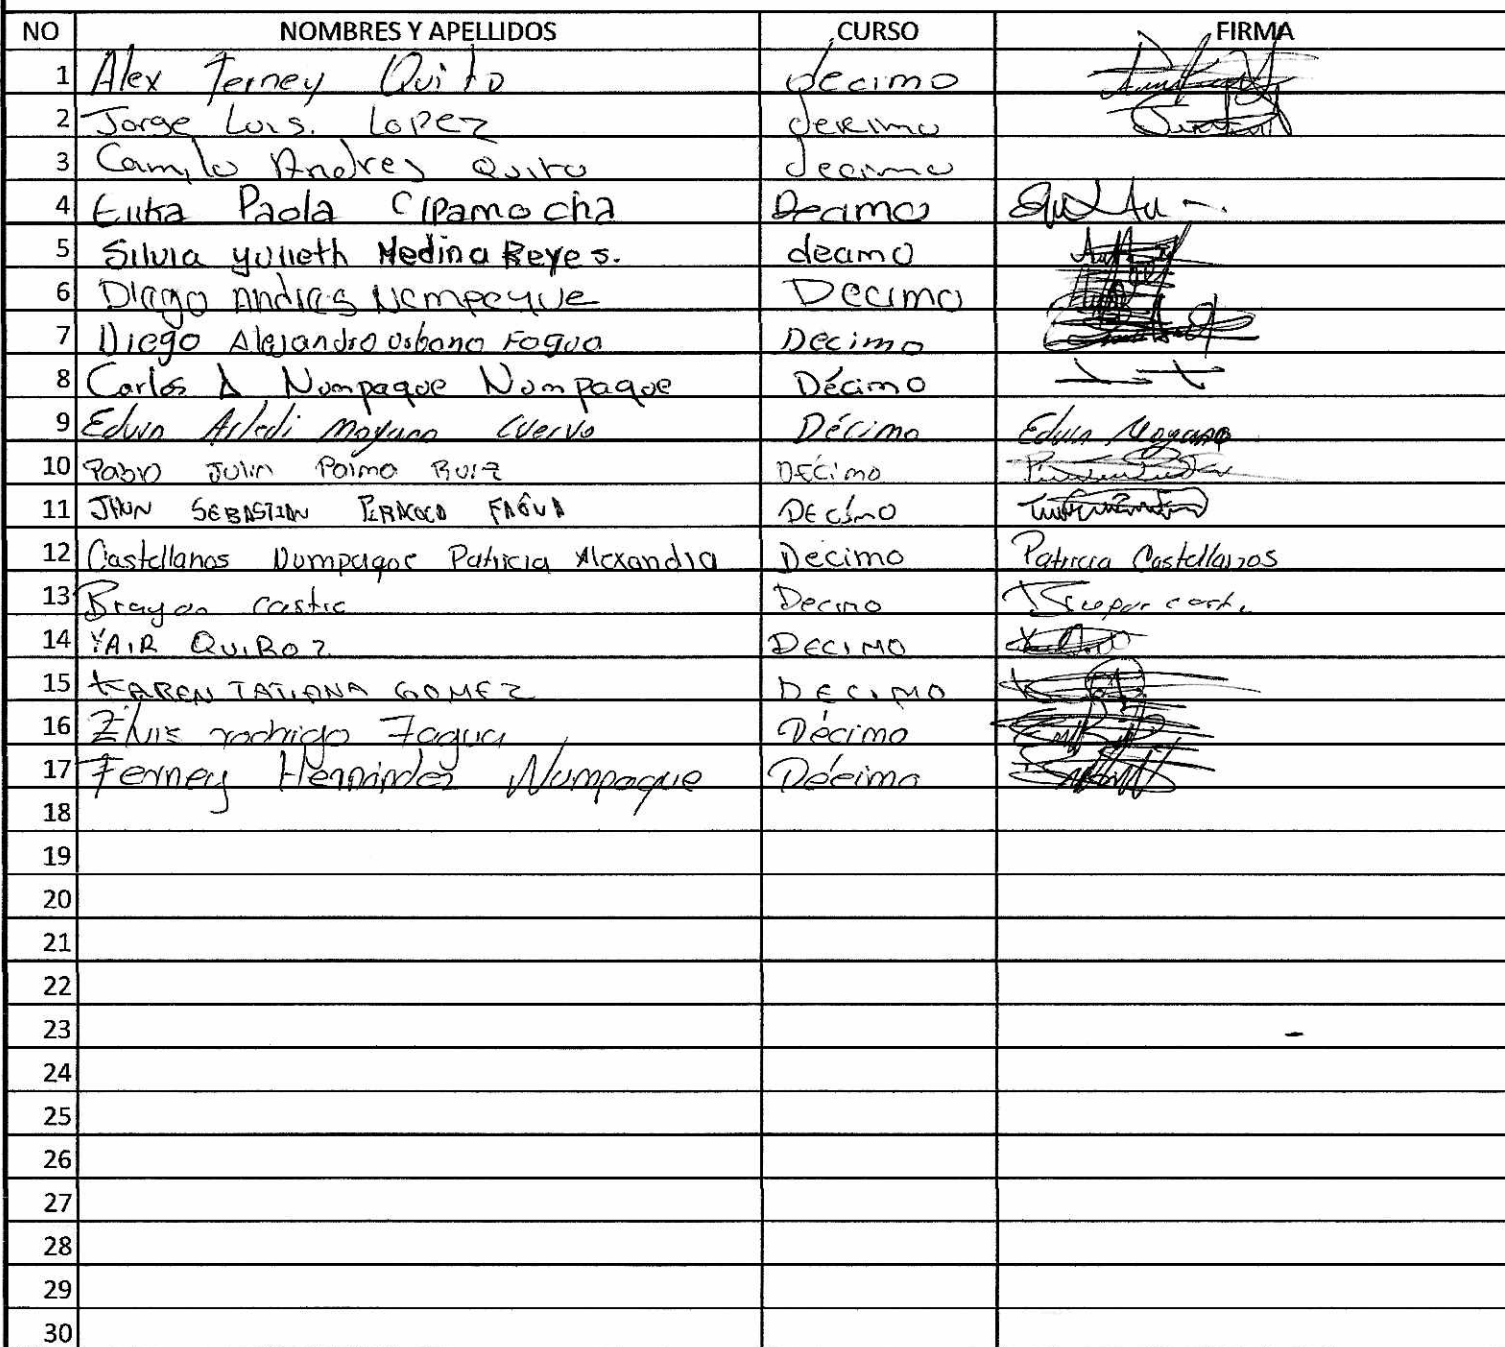 NO NOMBRES Y APELLIDOS CURSO FIRMA
1 Alex Ferney Quito decimo
2 Jorge Luis. Lopez decimo
3 Camilo Andres Quito decimo
4 Erika Paola Cipamocha Decimo
5 Silvia yulieth Medina Reyes. decimo
6 Diego Andres Nompaque Decimo
7 Diego Alejandro Urbano Fagua Decimo
8 Carlos A Nompaque Nompaque Décimo
9 Edwin Arledi Moyano Cuervo Décimo Edwin Moyano
10 Pablo Julin Palma Ruiz DECimo
11 JHUN SEBASTIAN FAGUA DECimO
12 Castellanos Numpaque Patricia Alexandra Decimo Patricia Castellanos
13 Brayan castro Decimo
14 YAIR QUIROZ DECIMO
15 KAREN TATIANA GOMEZ DECIMO
16 rodrigo Fagua Décimo
17 Ferney Hernández Numpaque Décimo
18
19
20
21
22
23
24
25
26
27
28
29
30